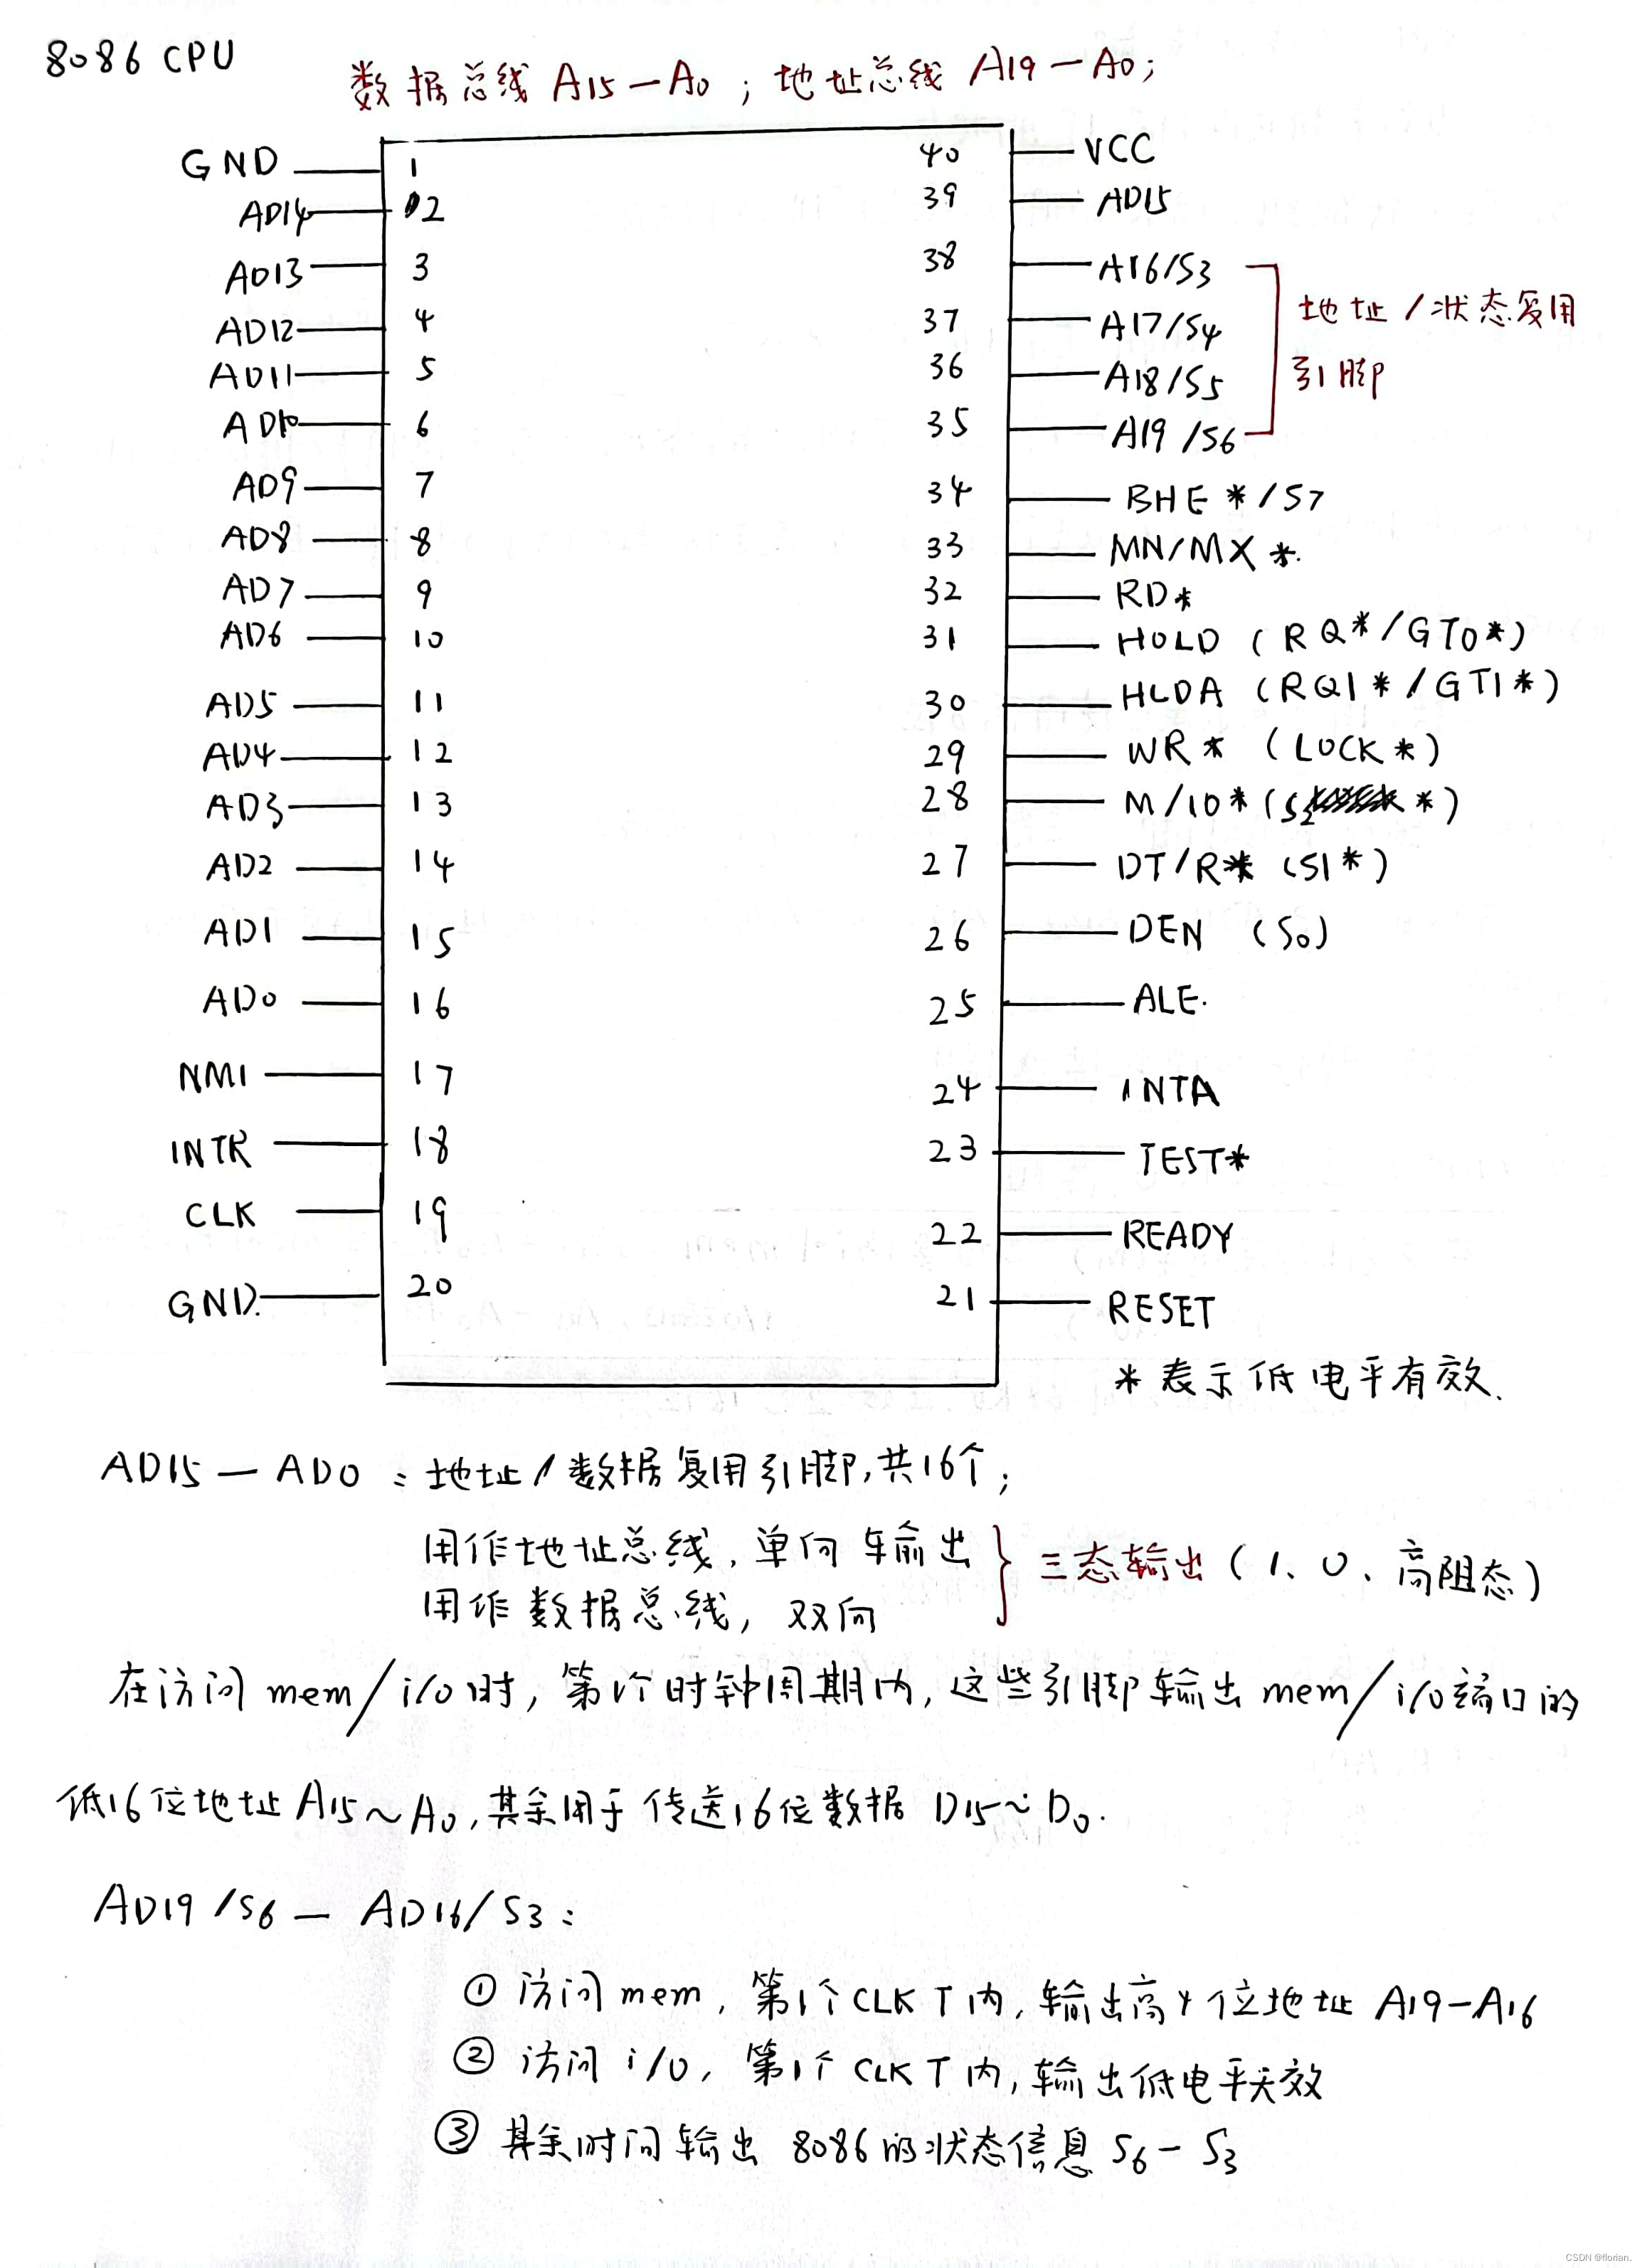 8086 CPU
数据总线 A15—A0；地址总线 A19—A0；
GND 1 40 VCC
AD14 2 39 AD15
AD13 3 38 A16/S3
AD12 4 37 A17/S4
地址/状态复用
AD11 5 36 A18/S5
引脚
AD10 6 35 A19/S6
AD9 7 34 BHE*/S7
AD8 8 33 MN/MX*.
AD7 9 32 RD*
AD6 10 31 HOLD (RQ*/GT0*)
AD5 11 30 HLDA (RQ1*/GT1*)
AD4 12 29 WR* (LOCK*)
AD3 13 28 M/IO* (S2*)
AD2 14 27 DT/R* (S1*)
AD1 15 26 DEN (S0)
AD0 16 25 ALE.
NMI 17 24 INTA
INTR 18 23 TEST*
CLK 19 22 READY
GND. 20 21 RESET
*表示低电平有效.
AD15—AD0：地址/数据复用引脚,共16个；
用作地址总线，单向 输出
用作数据总线，双向
三态输出(1、0、高阻态)
在访问mem/i/o时，第1个时钟周期内，这些引脚输出mem/i/o端口的
低16位地址A15～A0,其余用于传送16位数据 D15～D0.
AD19/S6—AD16/S3：
① 访问mem，第1个CLK T内，输出高4位地址 A19-A16
② 访问i/o，第1个CLK T内，输出低电平无效
③ 其余时间输出 8086的状态信息 S6-S3
CSDN @florian.